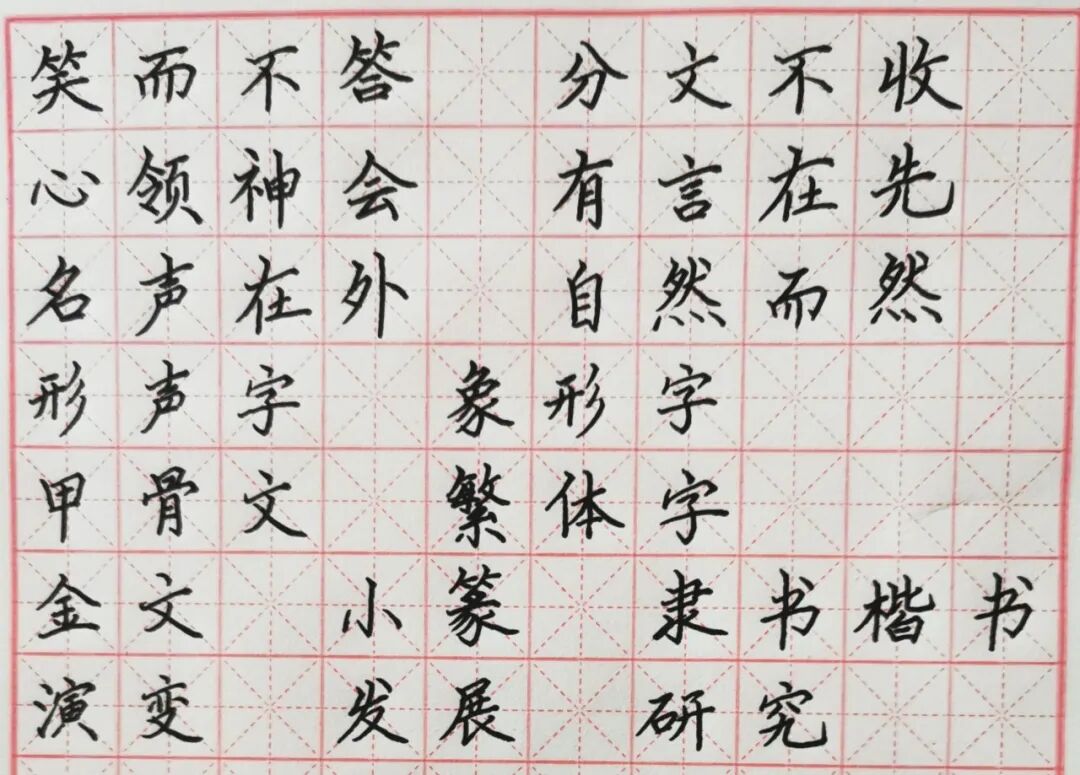 笑而不答 分文不收
心领神会 有言在先
名声在外 自然而然
形声字 象形字
甲骨文 繁体字
金文 小篆 隶书楷书
演变 发展 研究